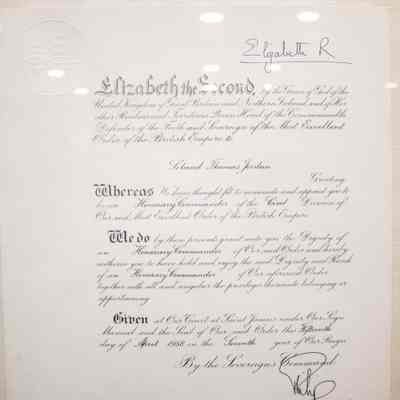 Elizabeth R
Elizabeth the Second, by the Grace of God of the
United Kingdom of Great Britain and Northern Ireland and of Her
other Realms and Territories Queen Head of the Commonwealth
Defender of the Faith and Sovereign of the Most Excellent
Order of the British Empire to
Thomas Jordan
Greeting
Whereas We have thought fit to nominate and appoint you to
be an Honorary Commander of the Civil Division of
Our said Most Excellent Order of the British Empire
We do by these presents grant unto you the Dignity of
an Honorary Commander of Our said Order and hereby
authorise you to have hold and enjoy the said Dignity and Rank
of an Honorary Commander of Our aforesaid Order
together with all and singular the privileges thereunto belonging or
appertaining
Given at Our Court at Saint James's under Our Sign
Manual and the Seal of Our said Order this Fifteenth
day of April 1958 in the Seventh year of Our Reign
By the Sovereign's Command
Philip